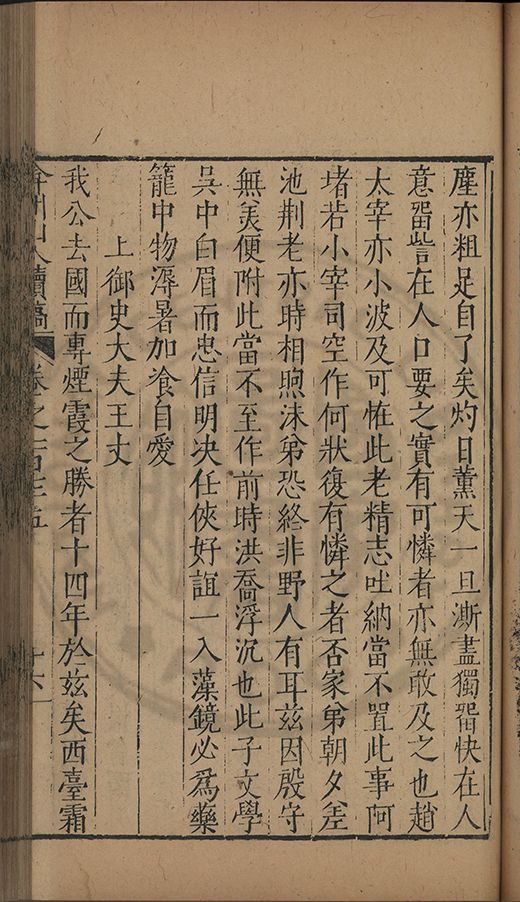 塵亦粗足自了矣灼日薰天一旦漸盡獨畱快在人
意畱訾在人口要之實有可憐者亦無敢及之也趙
太宰亦小波及可恠此老精志吐納當不置此事阿
堵若小宰司空作何狀復有憐之者否家弟朝夕差
池荆老亦時相喣沫弟恐終非野人有耳茲因殷守
無羙便附此當不至作前時洪喬浮沉也此子文學
吳中白眉而忠信明決任俠好誼一入藻鏡必爲藥
籠中物溽暑加飡自愛
上御史大夫王丈
我公去國而專煙霞之勝者十四年於茲矣西臺霜
弇州山人續稿
卷之一百
十六